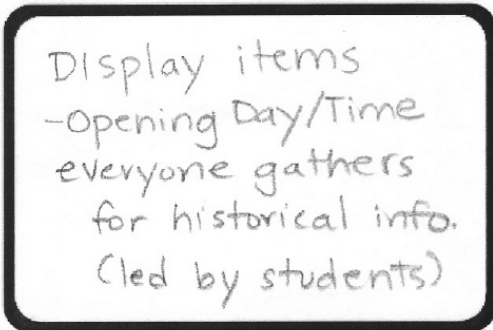 Display items
-Opening Day/Time
everyone gathers
for historical info.
(led by students)